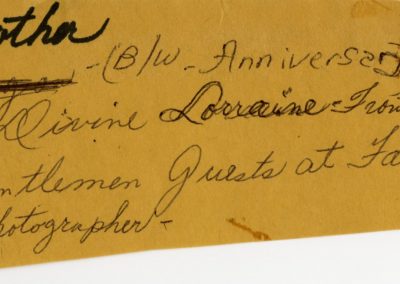 other
-(B/W - Anniversa
Divine Lorraine - Fro
ntlemen Guests at Fa
hotographer -